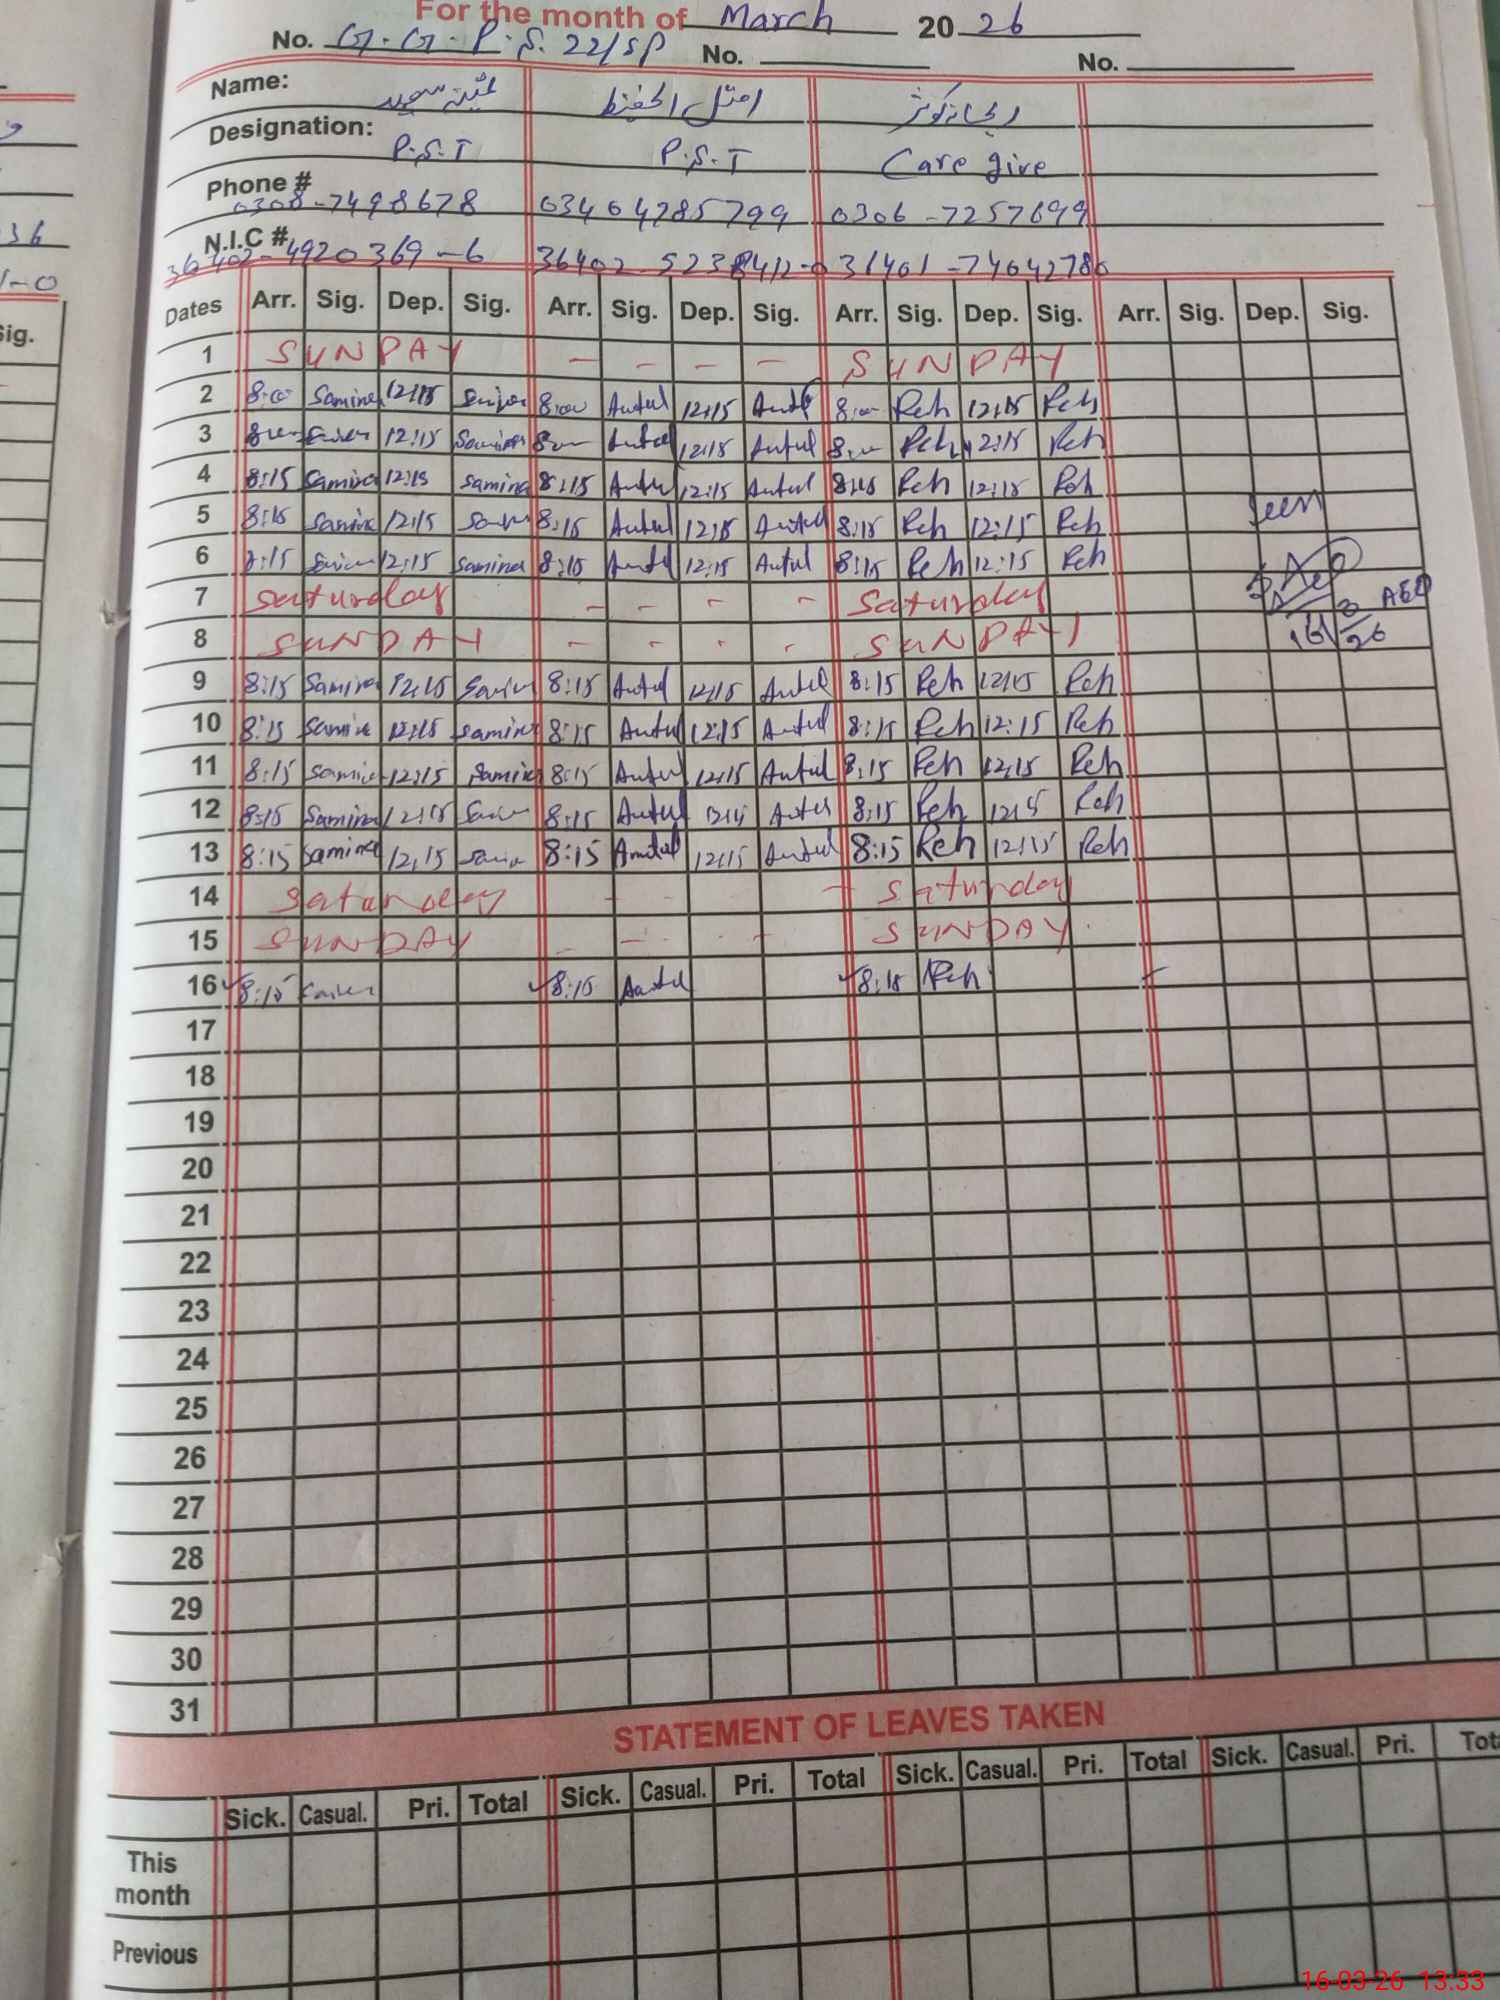 For the month of March 2026
No. G.G.P.S. 22/SP No. No.
Name: امتل الحفیظ ریحانہ کوثر
Designation: P.S.T P.S.T Care give
Phone # 0308-7498678 03404285799 0306-7257699
N.I.C # 36402-4920369-6 36402-5238412-0 31401-74642780
Dates Arr. Sig. Dep. Sig. Arr. Sig. Dep. Sig. Arr. Sig. Dep. Sig. Arr. Sig. Dep. Sig.
1 SUNDAY - - - - SUNDAY
2 8:00 Samina 12:15 8:00 Amtul 12:15 Amtul 8:00 Reh 12:15 Reh
3 8:00 12:15 Samina 8:00 Amtul 12:15 Amtul 8:00 Reh 12:15 Reh
4 8:15 Samina 12:15 Samina 8:15 Amtul 12:15 Amtul 8:15 Reh 12:15 Reh
5 8:15 Samina 12:15 8:15 Amtul 12:15 Amtul 8:15 Reh 12:15 Reh
Seen
6 12:15 Samina 8:15 Amtul 12:15 Amtul 8:15 Reh 12:15 Reh
7 Saturday - - - - Saturday
AEO
8 SUNDAY - - - - SUNDAY
16/3/26
9 8:15 Samina 12:15 8:15 Amtul 12:15 Amtul 8:15 Reh 12:15 Reh
10 8:15 Samina 12:15 Samina 8:15 Amtul 12:15 Amtul 8:15 Reh 12:15 Reh
11 8:15 Samina 12:15 Samina 8:15 Amtul 12:15 Amtul 8:15 Reh 12:15 Reh
12 8:15 Samina 12:15 8:15 Amtul 12:15 Amtul 8:15 Reh 12:15 Reh
13 8:15 Samina 12:15 8:15 Amtul 12:15 Amtul 8:15 Reh 12:15 Reh
14 Saturday - - - - Saturday
15 SUNDAY - - - SUNDAY
16 8:15 8:15 Amtul 8:15 Reh
17
18
19
20
21
22
23
24
25
26
27
28
29
30
31
STATEMENT OF LEAVES TAKEN
Sick. Casual. Pri. Total Sick. Casual. Pri. Total Sick. Casual. Pri. Total Sick. Casual. Pri.
This
month
Previous
16-03-26 13:33